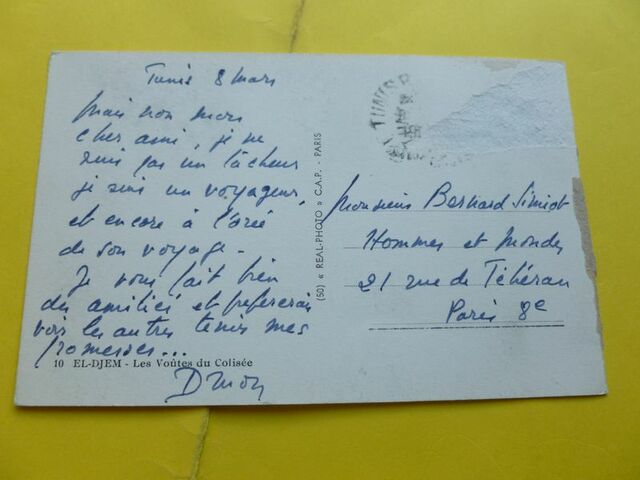 Tunis 8 mars
Mais non mon
cher ami, je ne
suis pas un lâcheur
je suis un voyageur,
et encore à l'orée
de son voyage -
Je vous fait bien
des amitiés et
vers les autres tenir mes
promesses...
10 EL-DJEM - Les Voûtes du Colisée
(50) « REAL-PHOTO » C.A.P. - PARIS
TUNIS
Monsieur Bernard Simiot
Hommes et Mondes
21 rue de Téhéran
Paris 8e